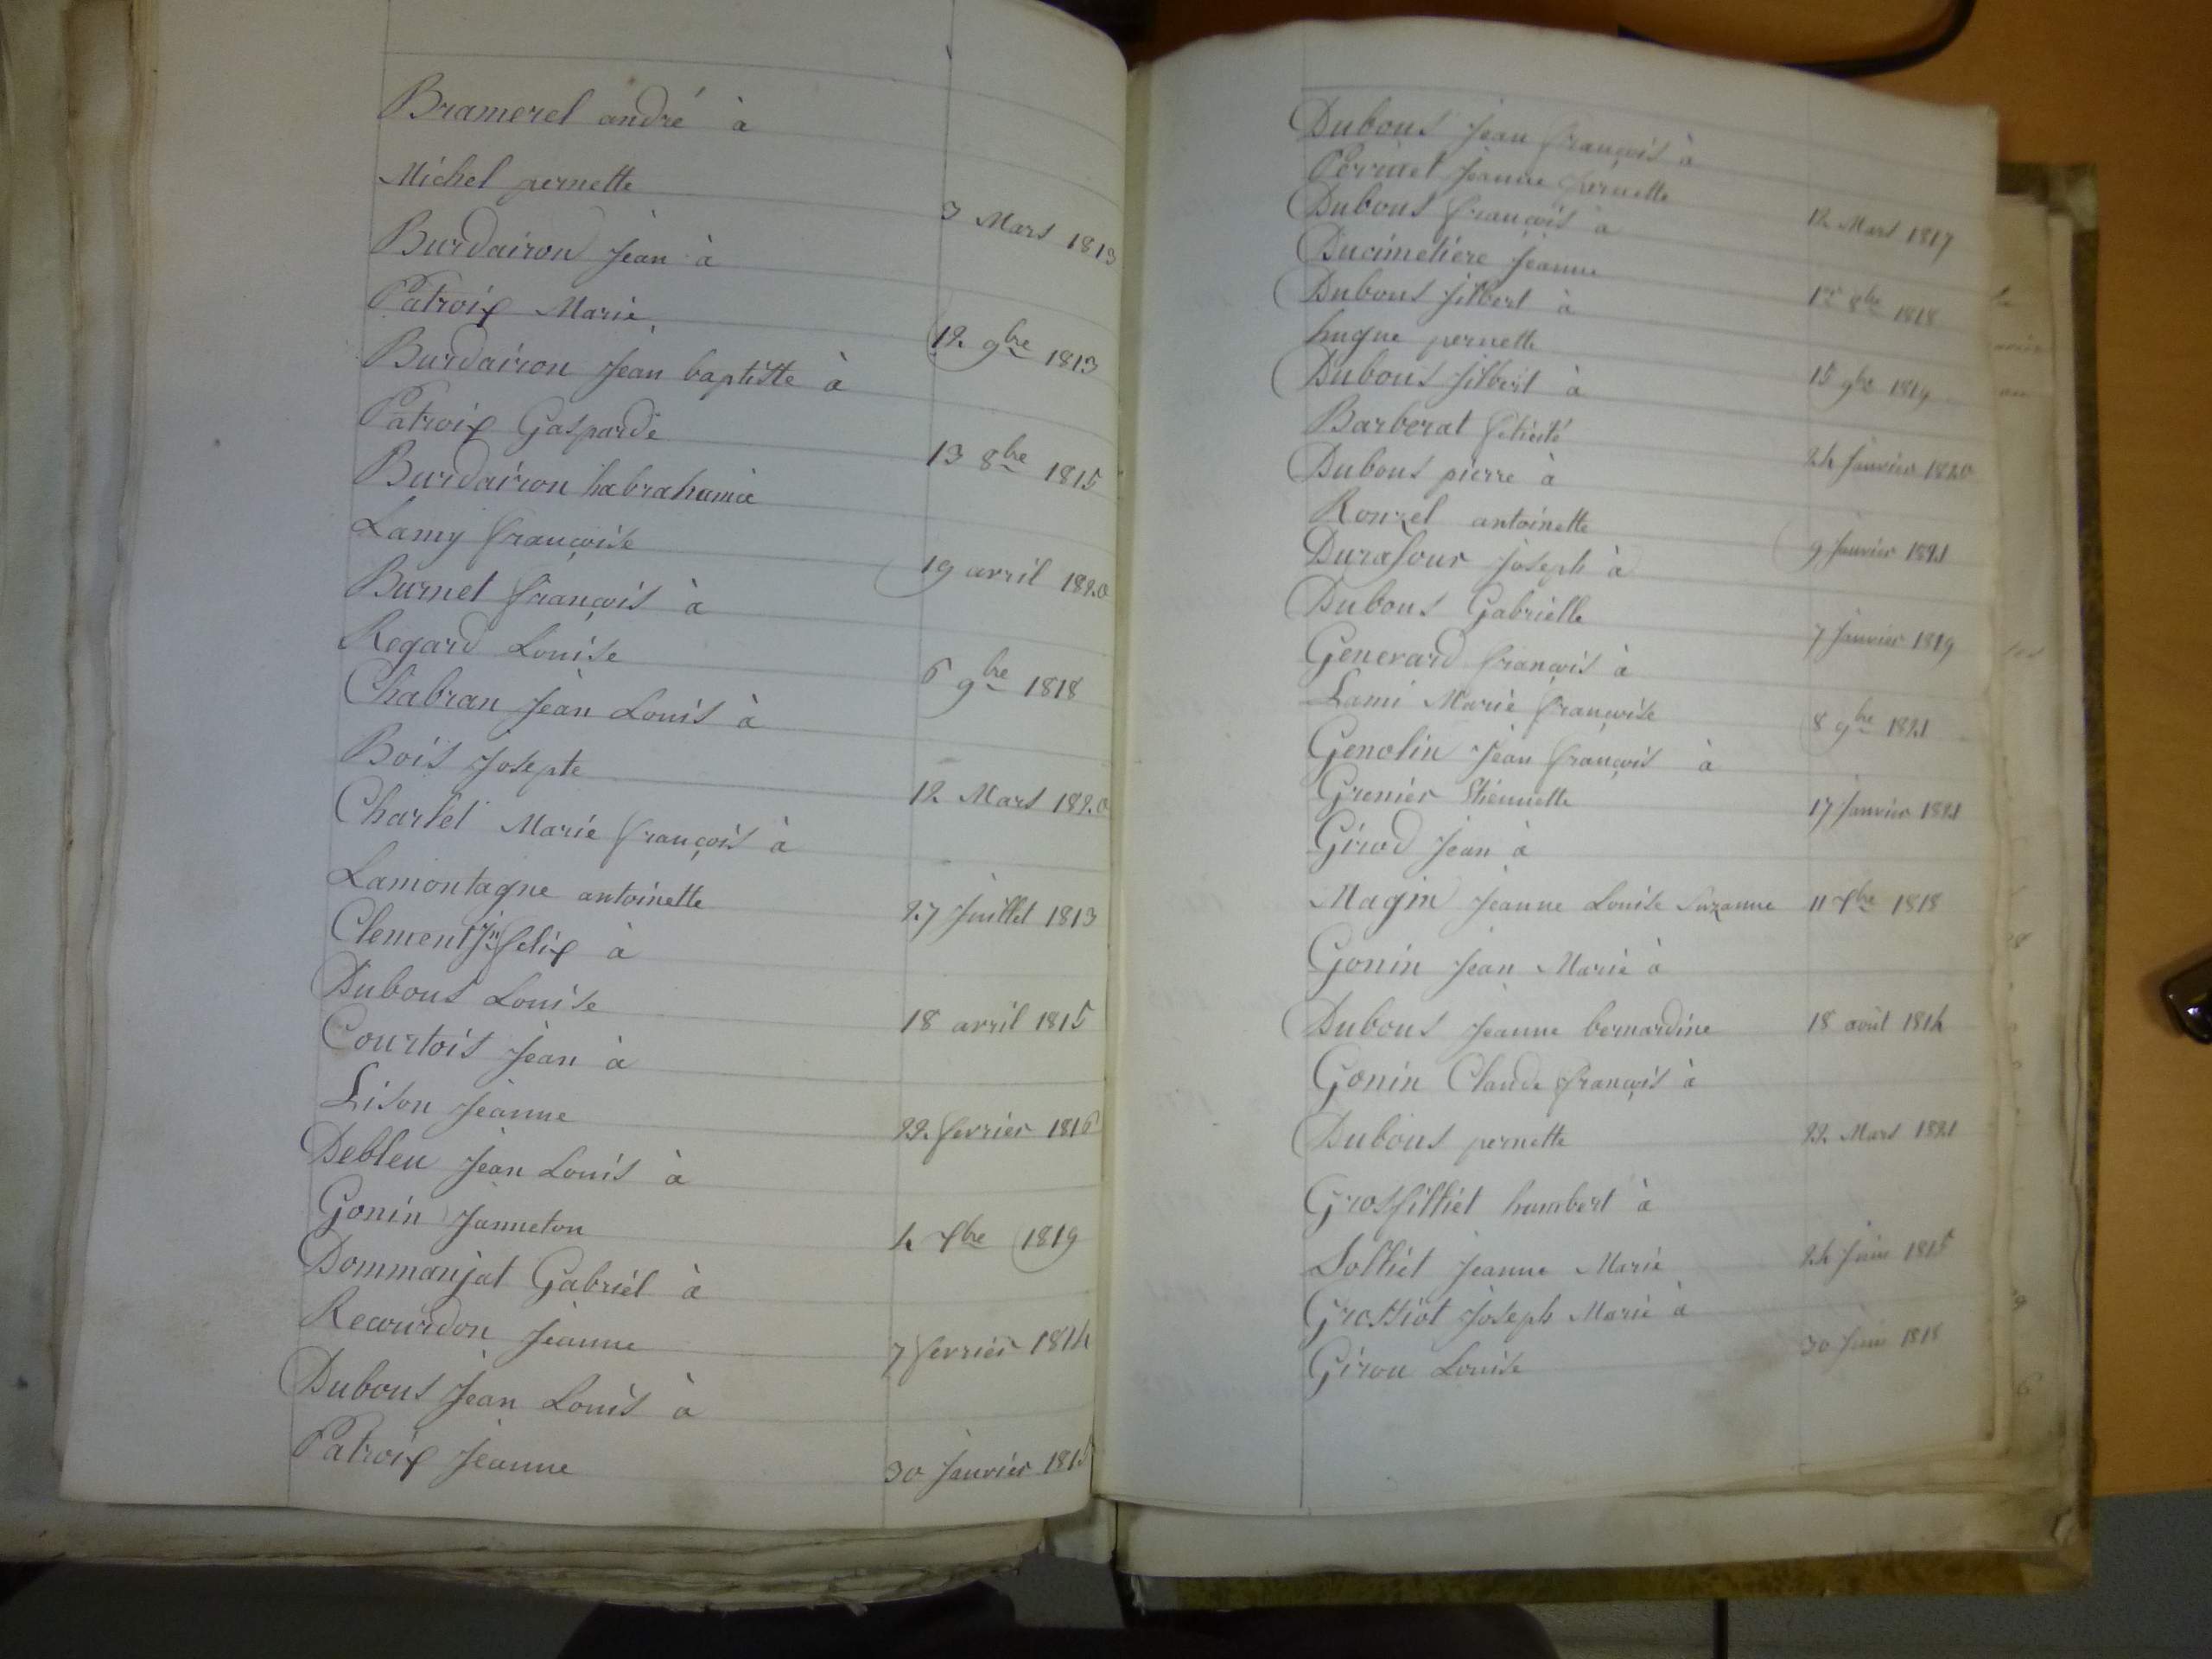 Bramerel andré à
Michel pernette 3 Mars 1813
Burdairon Jean à
Patroix Marie 12 9bre 1813
Burdairon Jean baptiste à
Patroix Gasparde 13 8bre 1815
Burdairon habrahamà
Lamy françoise 19 avril 1820
Burnet françois à
Regard Louise 6 9bre 1818
Chabran Jean Louis à
Bois Josepte 12 Mars 1820
Charlet Marie françois à
Lamontagne antoinette 27 Juillet 1813
Clement Jn felix à
Dubous Louise 18 avril 1815
Courtois Jean à
Lison Jeanne 22 fevrier 1816
Debleu Jean Louis à
Gonin Janneton 4 7bre 1819
Dommanjat Gabriel à
Recourdon Jeanne 7 fevrier 1814
Dubous Jean Louis à
Patroix Jeanne 30 Janvier 1815
Dubous Jean françois à
Perrinet Jeanne Pernette 12 Mars 1817
Dubous françois à
Ducimetiere Jeanne 1er 8bre 1818
Dubous Jilbert à
hugue pernette 15 9bre 1819
Dubous Jilbert à
Barberat felicité 24 Janvier 1820
Dubous pierre à
Rouzel antoinette 9 Janvier 1821
Durafour Joseph à
Dubous Gabrielle 7 Janvier 1819
Generard françois à
Lami Marie françoise 8 9bre 1821
Genolin Jean françois à
Grenier Etiennette 17 Janvier 1821
Girod Jean à
Magin Jeanne Louise Suzanne 11 7bre 1818
Gonin Jean Marie à
Dubous Jeanne bernardine 18 août 1814
Gonin Claude françois à
Dubous pernette 22 Mars 1821
Grosfilliet humbert à
Solliet Jeanne Marie 24 Juin 1815
Grossiot Joseph Marie à
Girou Louise 30 Juin 1818